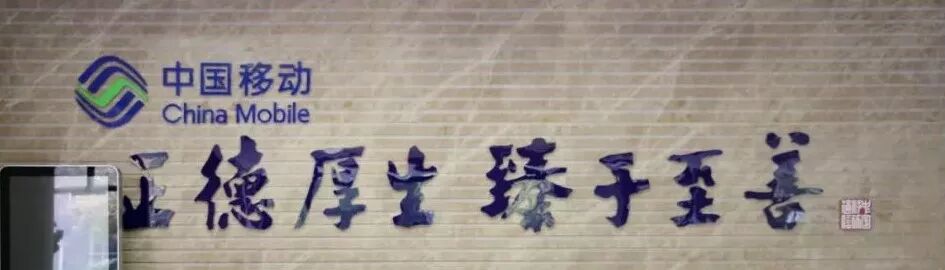 中国移动
China Mobile
正德厚生 臻于至善